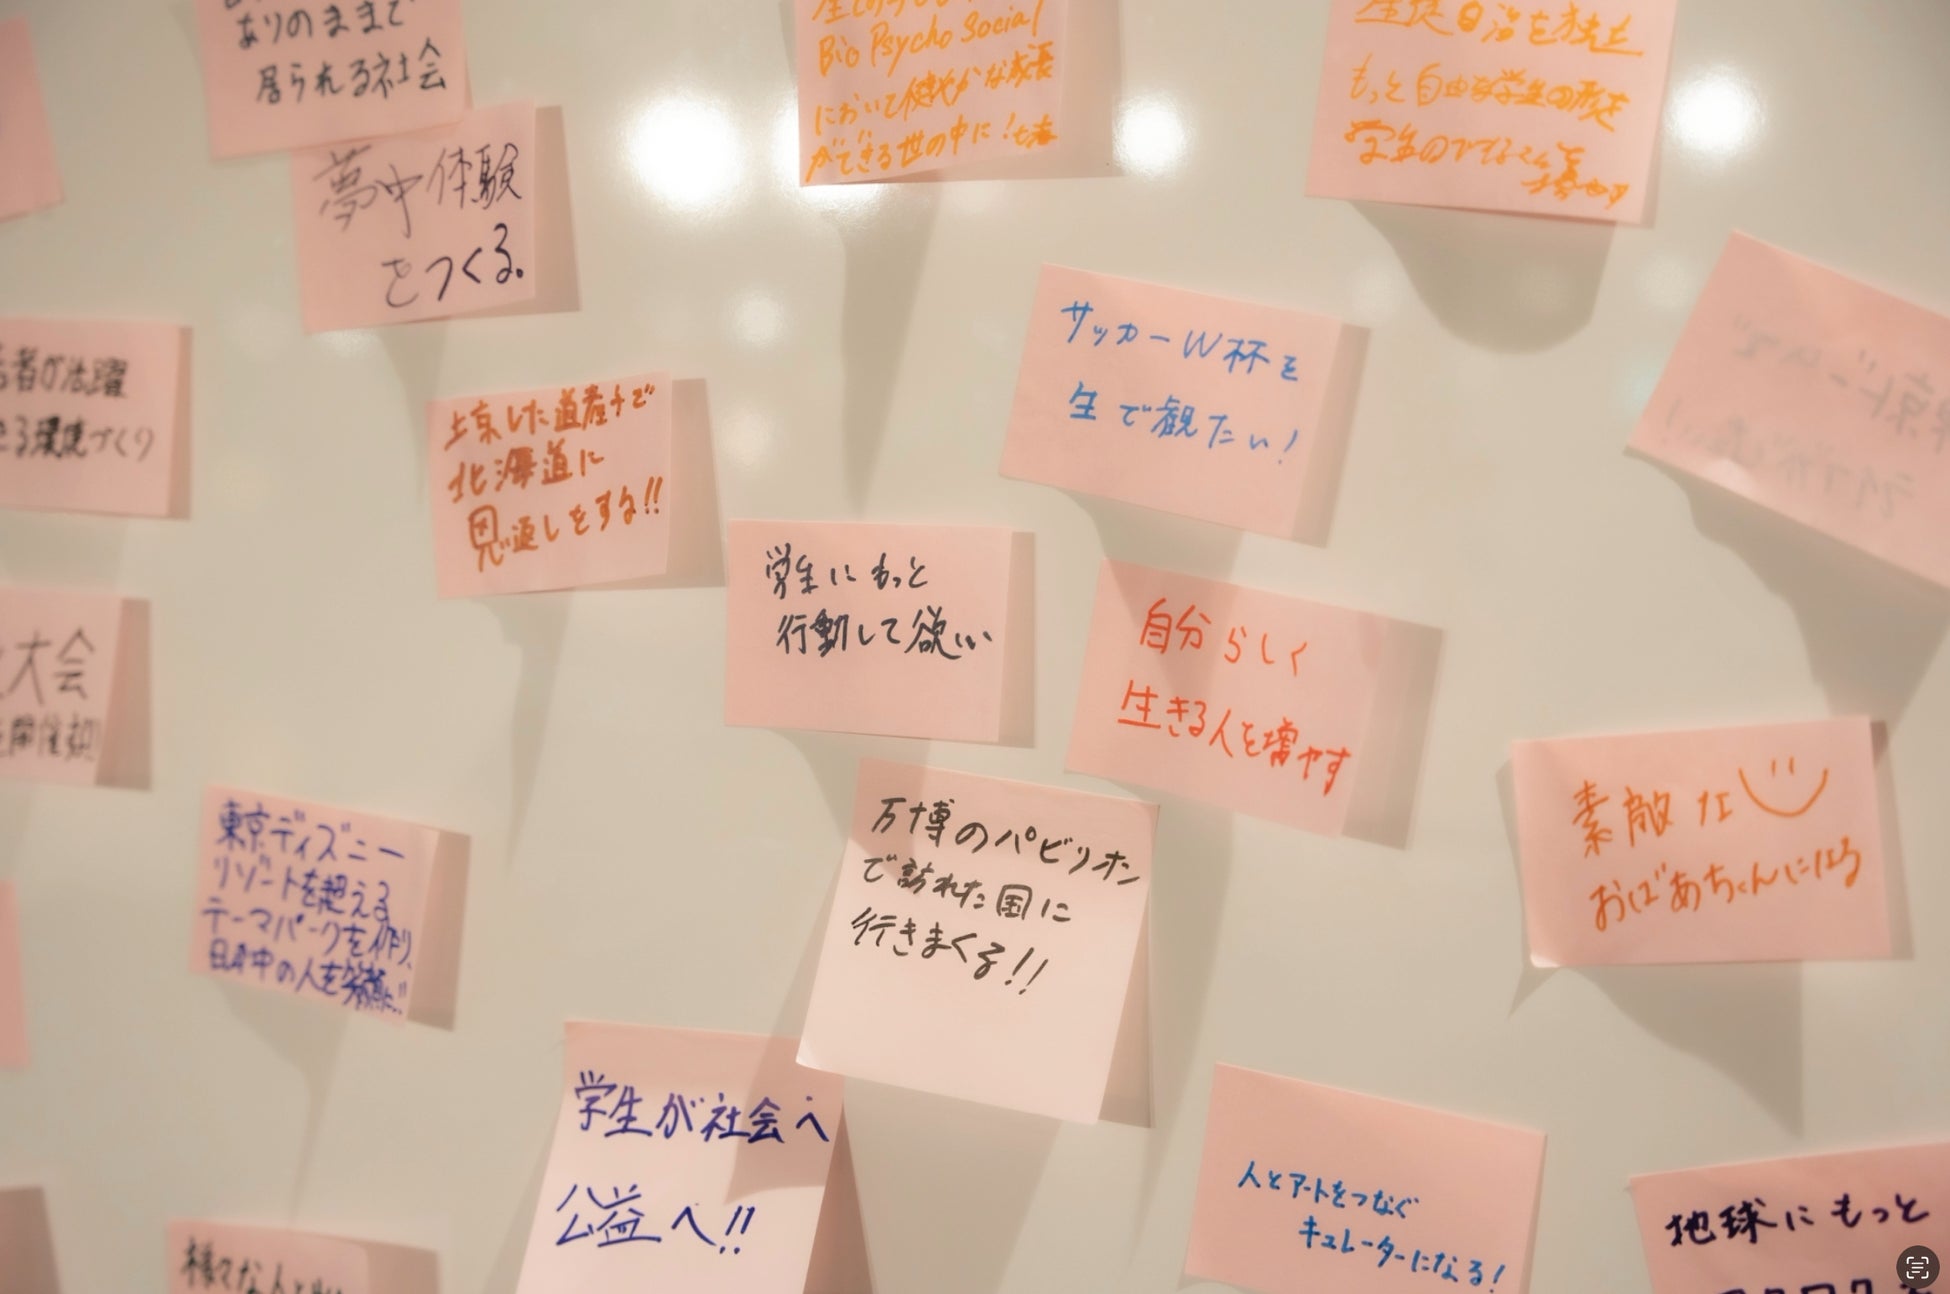 ありのままで
居られる社会
Bio Psycho Social
において健やかな成長
ができる世の中に!
生徒自治を独立
もっと自由な学生の形を
夢中体験
をつくる。
サッカーW杯を
生で観たい!
者が活躍
る環境づくり
上京した道産子で
北海道に
恩返しをする!!
学生にもっと
行動して欲しい
自分らしく
生きる人を増やす
大会
を開催
素敵な
おばあちゃんになる
東京ディズニー
リゾートを超える
テーマパークを作り、
日本中の人を笑顔に!!
万博のパビリオン
で訪れた国に
行きまくる!!
学生が社会へ
公益へ!!
人とアートをつなぐ
キュレーターになる!
地球にもっと
様々な人と